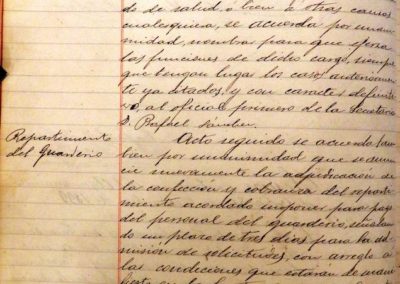 do de salud, o bien a otras causas
cualesquiera, se acuerda por unani
midad, nombrar para que ejerza
las funciones de dicho cargo, siempre
que tengan lugar los casos anteriormen
te ya citados, y con caracter definiti
vo, al oficial primero de la Secretaria
D. Rafael
Repartimiento
del Guarderio
Acto seguido se acuerda tam
bien por unanimidad que se anun
cie nuevamente la adjudicacion de
la confeccion y cobranza del reparti
miento acordado imponer para pago
del personal del guarderio, señalan
do un plazo de tres dias para la ad
mision de solicitudes, con arreglo a
las condiciones que estaran de mani